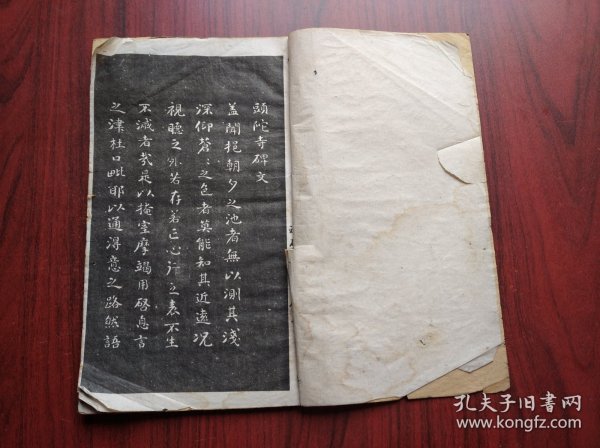 頭陀寺碑文
盖聞挹朝夕之池者無以測其淺
深仰蒼〻之色者莫能知其近遠況
視聽之外若存若亡心行之表不生
不滅者哉是以掩室摩竭用啓息言
之津杜口毗耶以通得意之路然語
孔夫子旧书网
www.kongfz.com